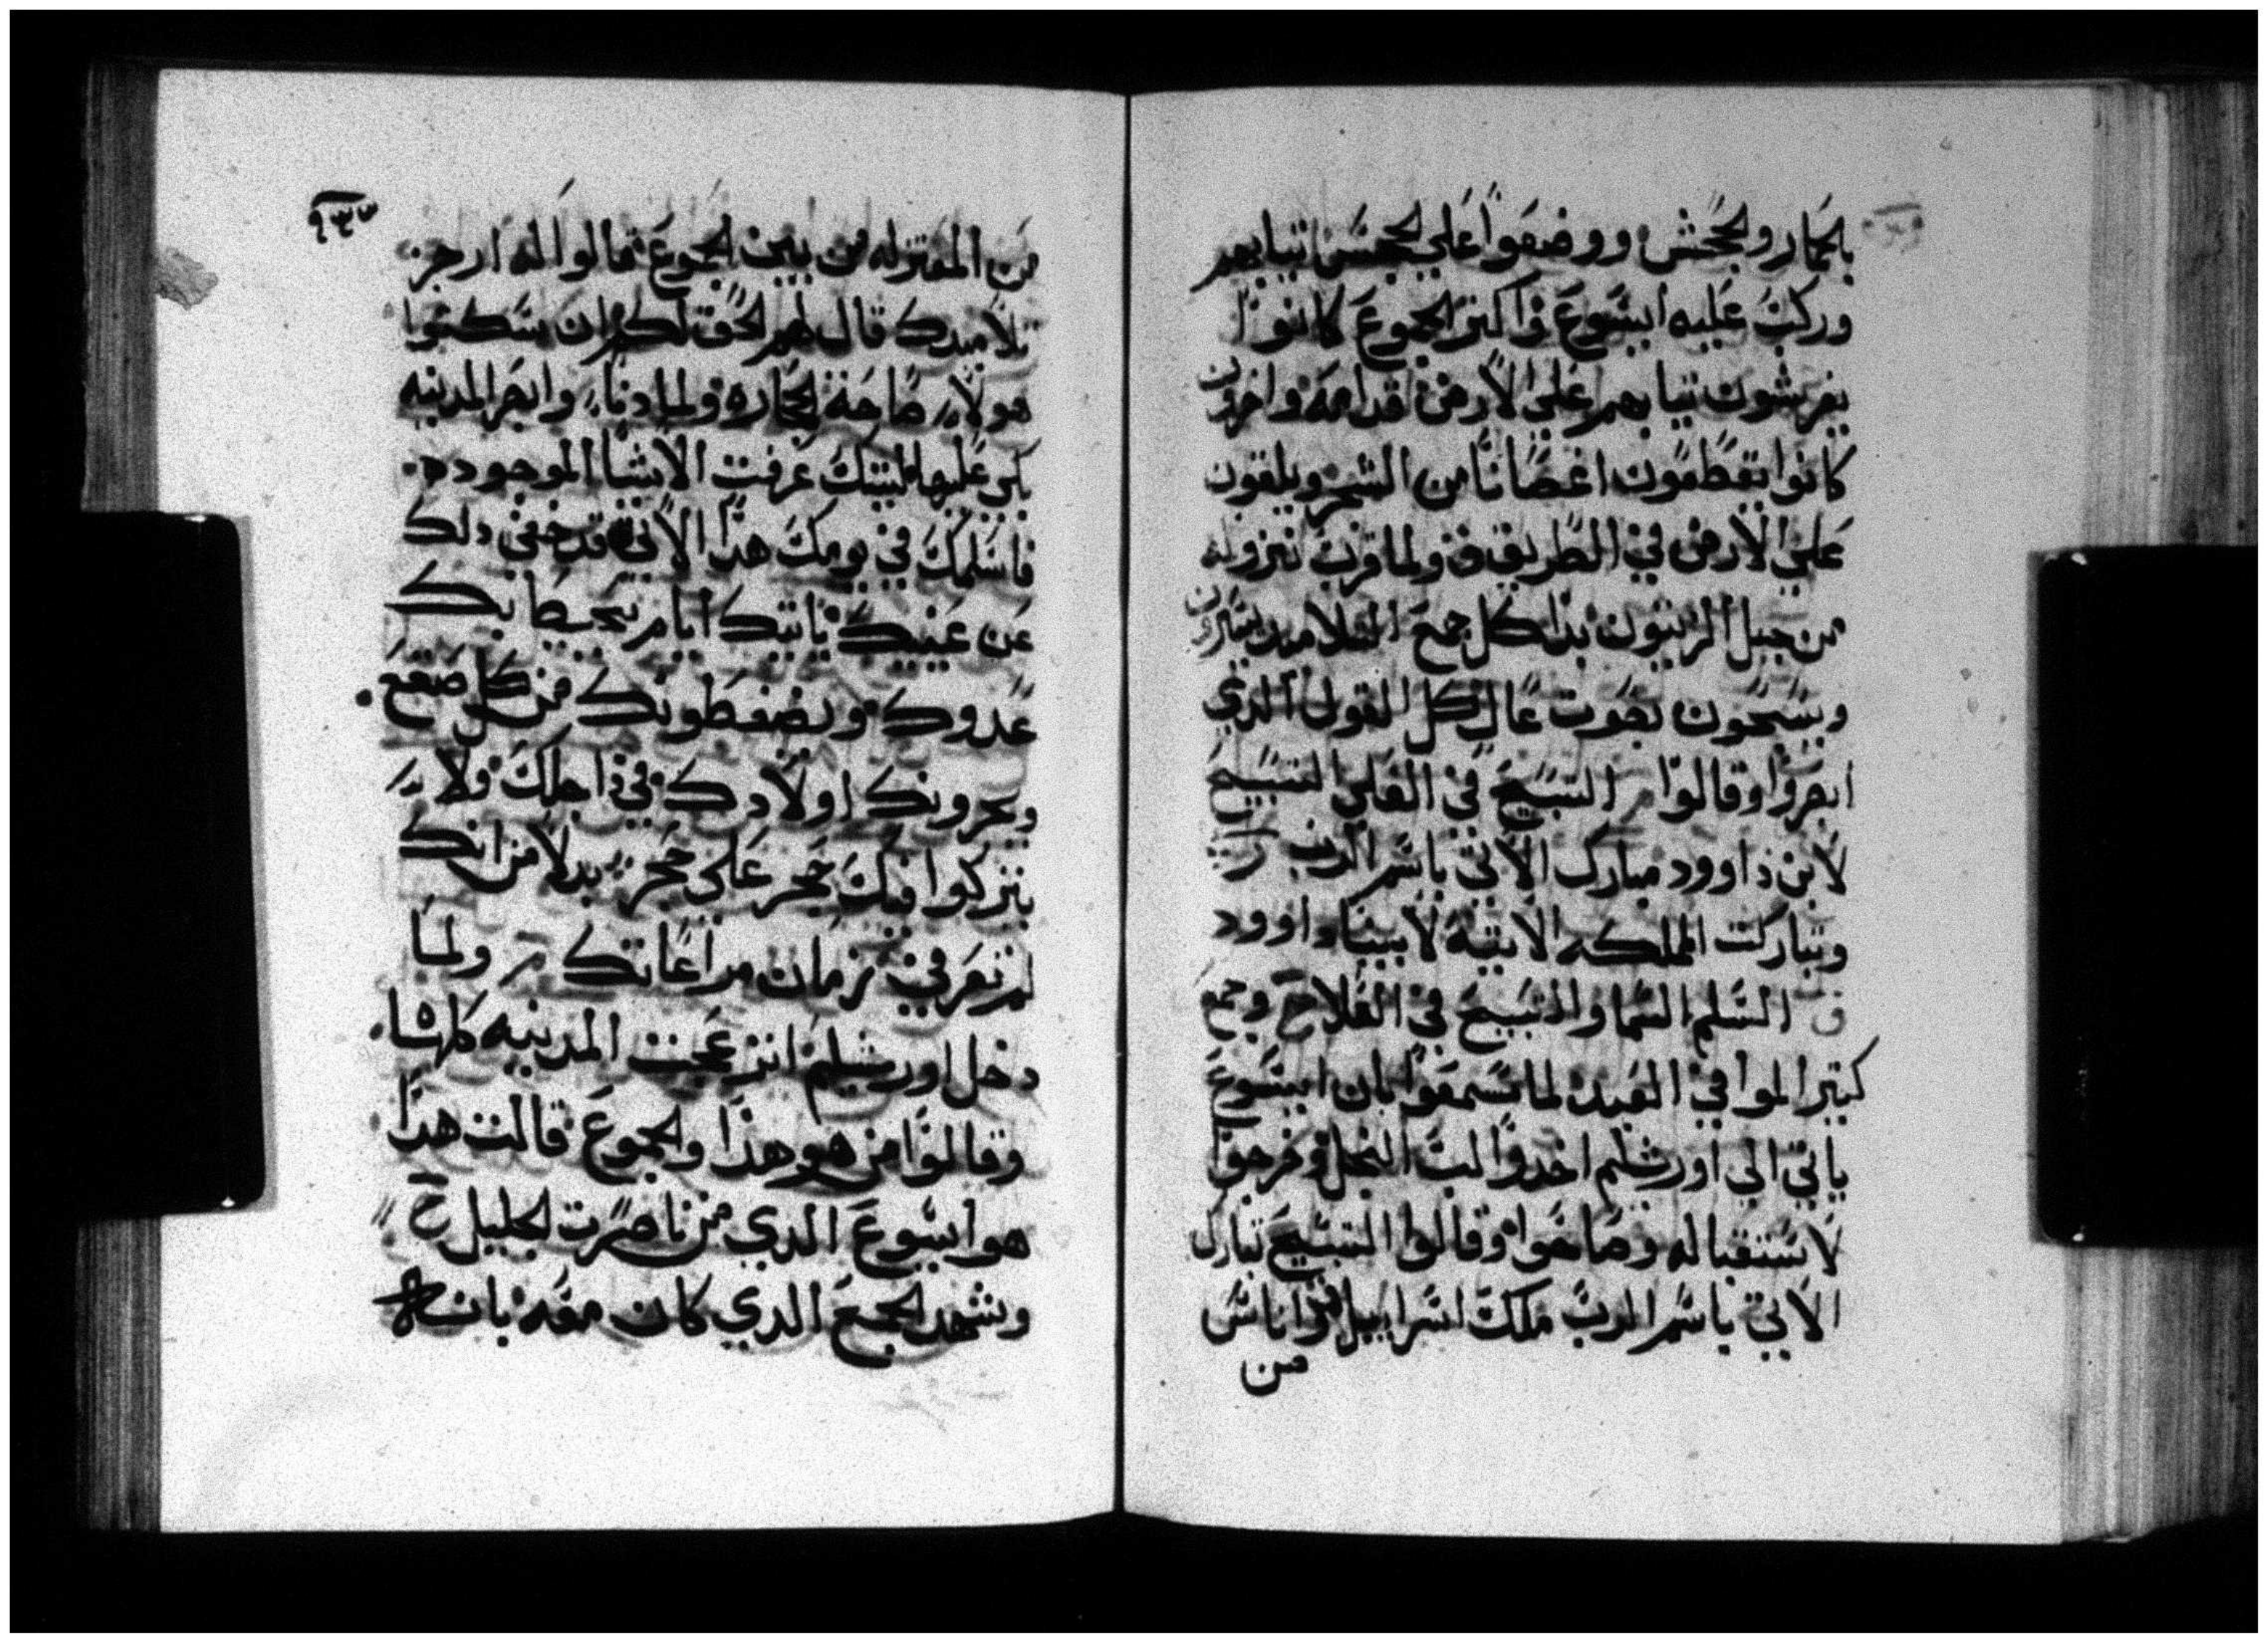 بالحمار والجحش ووضعوا علي الجحش تيابهم
وركب عليه ايسوع واكتر الجموع كانوا
يفرشون تيابهم علي الارض قدامه واخرون
كانوا يقطعون اغصانا من الشجر ويلقون
علي الارض في الطريق ق ولما قرب نزوله
من جبل الزيتون بدا كل جمع التلاميد يسرون
ويسبحون بصوت عال كل القول الدي
ابصروا وقالوا ر التسبيح في العلي التسبيح
لابن داوود مبارك الاتي باسم الرب
وتباركت المملكه الاتيه لابينا داوود
ق السلم السما والتسبيح في العلا ح وجمع
كتير اتوا في العيد لما سمعوا بان ايسوع
ياتي الي اورشليم اخدوا لب النخل وخرجوا
لاستقباله وصاحوا وقالوا التسبيح تبارك
الاتي باسم الرب ملك اسراييل ق واناس
من
٩٣٣
من المعتزله من بين الجموع قالوا له ازجر
تلاميدك قال لهم الحق لكم ان سكتوا
هولاء صاحت الحجاره ولما دنا وابصر المدينه
بكي عليها ليتك عرفت الاشيا الموجوده
فاسلمك في يومك هدا الاتي قد خفي دلك
عن عينيك ياتيك ايام يحيطا بك
عدوك ويضغطونك من كل صقع
ويحرونك اولادك في داخلك ولا
يتركوا فيك حجر علي حجر بدلا من انك
لم تعرفي زمان مراعاتك ر ولما
دخل اورشليم انزعجت المدينه كلها
وقالوا من هو هدا والجموع قالت هدا
هو ايسوع الدي من ناصرت الجليل ح
وشهد الجمع الدي كان معه بانه